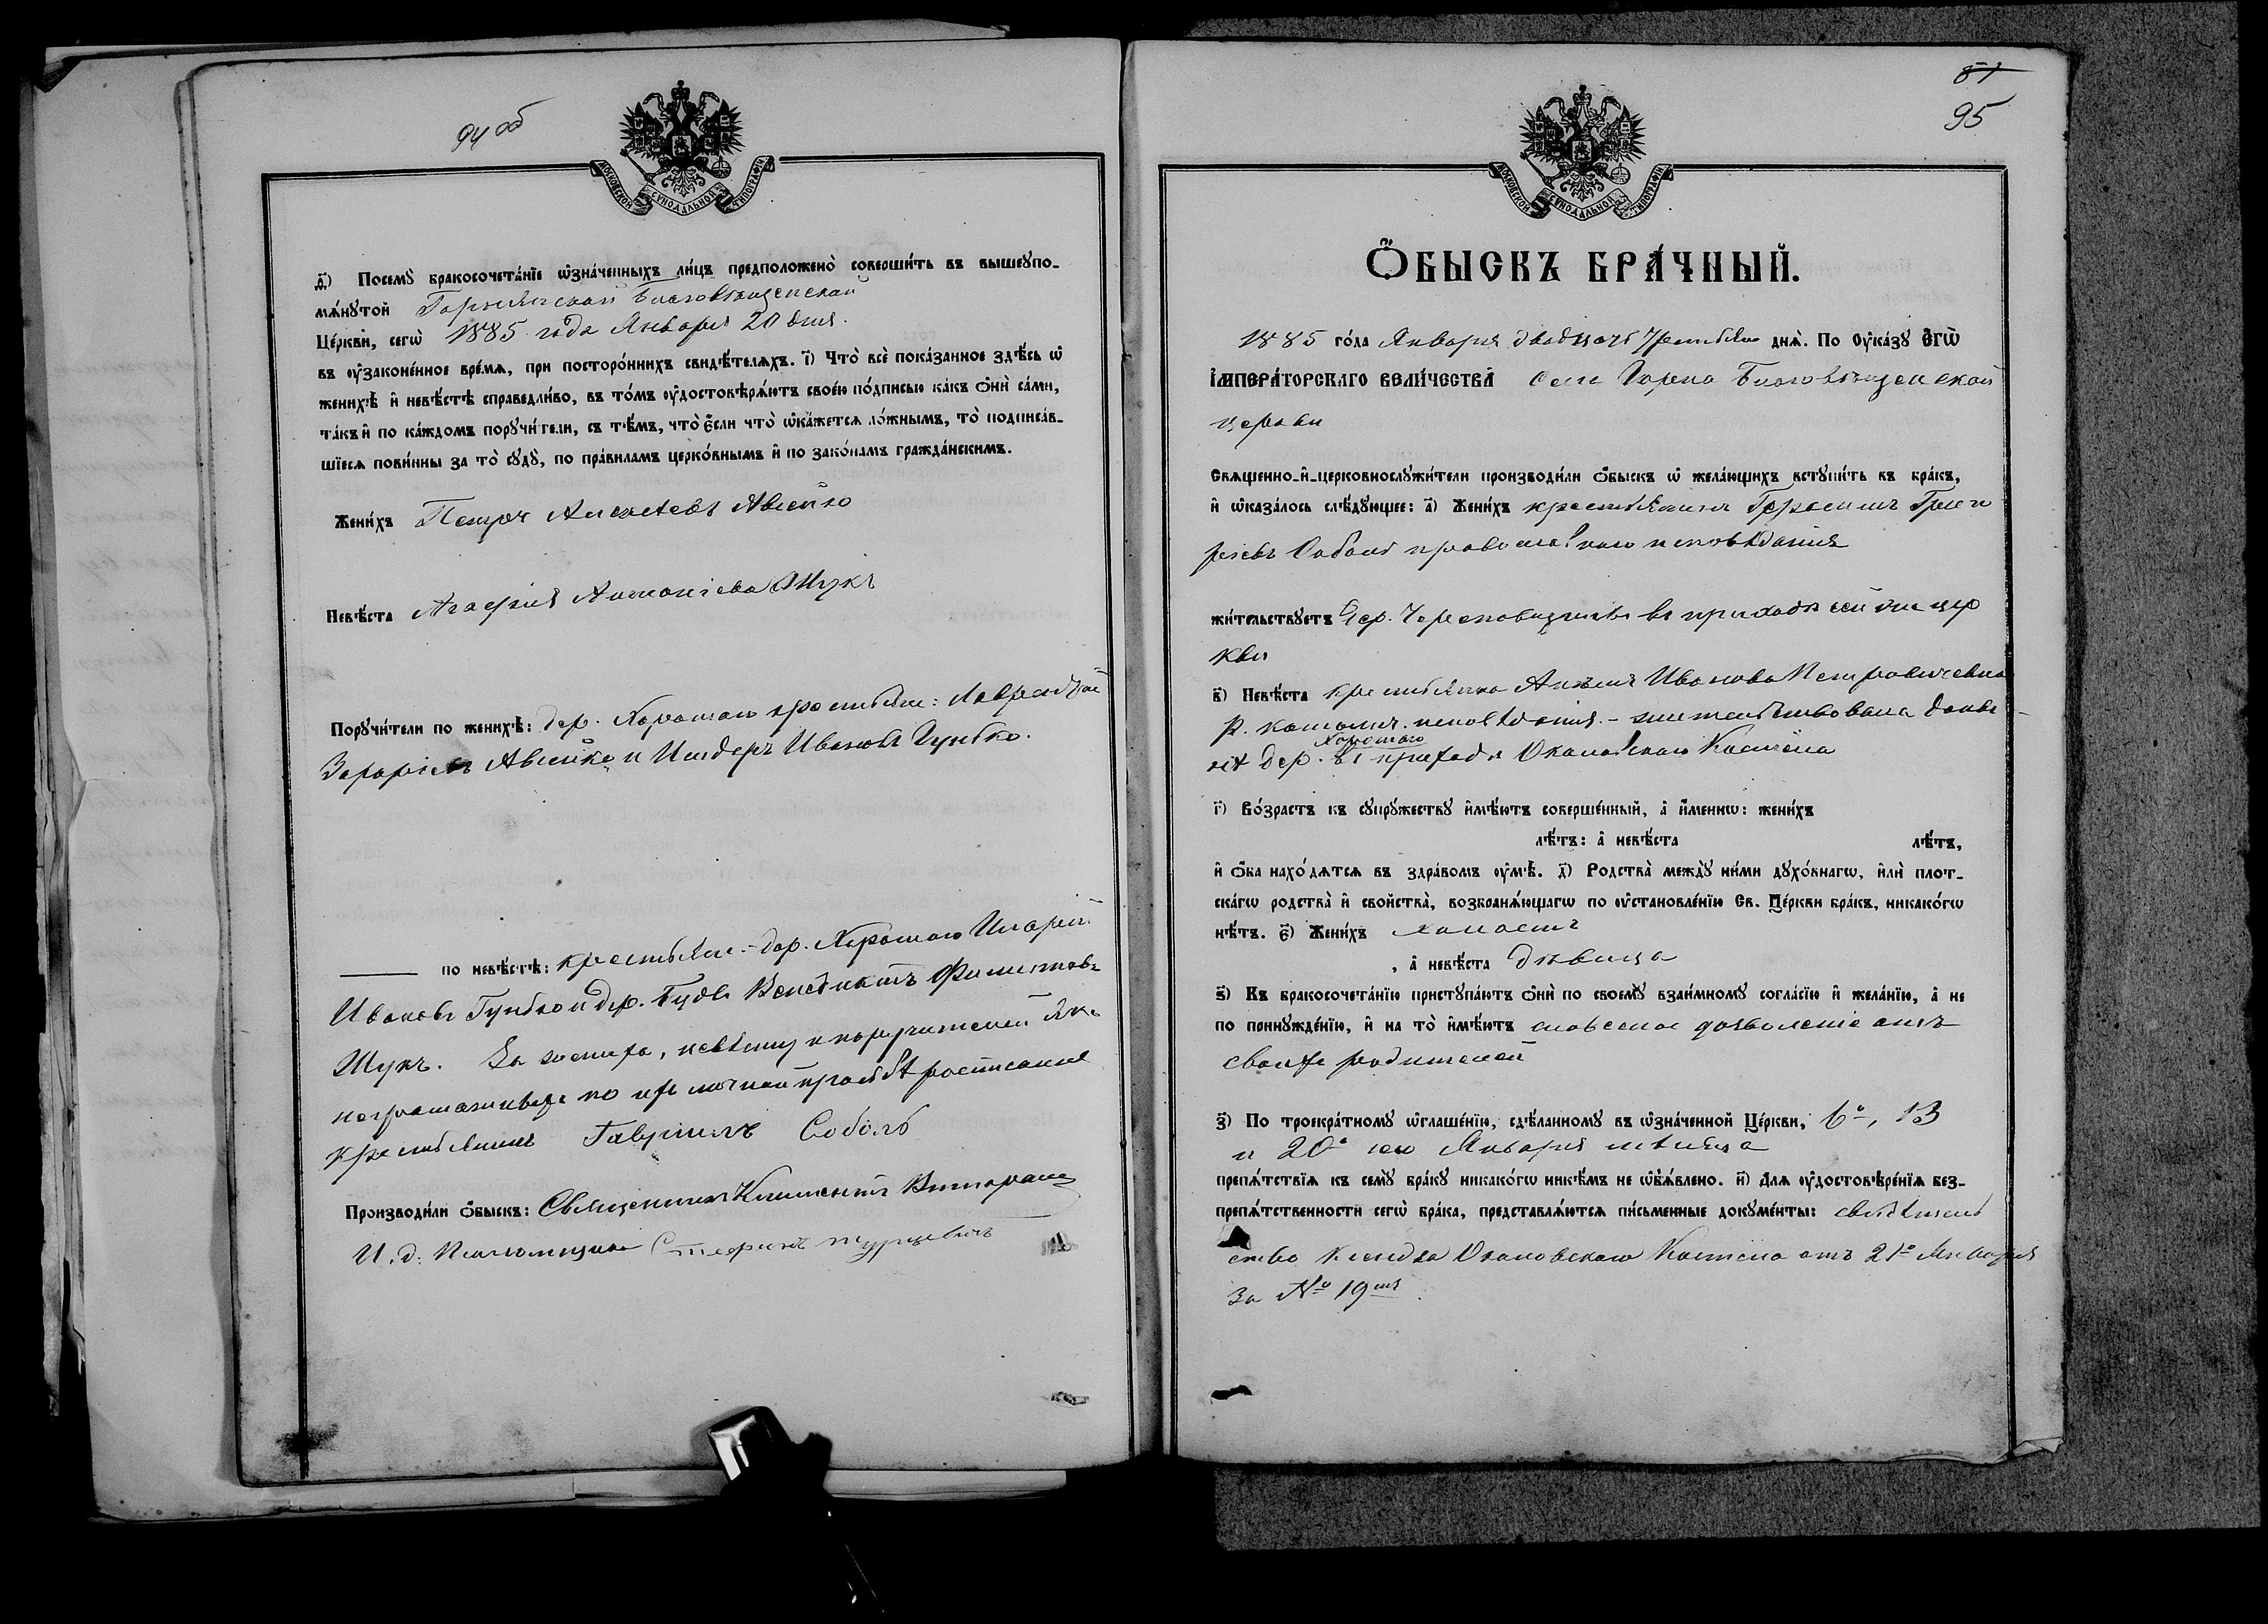 94 об
МОСКОВСКОЙ СѴНОДАЛЬНОЙ ТИПОГРАФІИ
д҃) Посемꙋ̀ бракосочета́нїе ѡ҆зна́ченныхъ ли́цъ предположено̀ соверши́ть въ вышеꙋпо-
мѧ́нꙋтой Благовѣщенской
Це́ркви, сегѡ̀ 1885 года Января 20 дня.
въ ᲂу҆законе́нное вре́мѧ, при посторо́ннихъ свидѣ́телѧхъ. і҃) Что̀ всѐ пока́занное здѣ́сь ѡ҆
женихѣ̀ и҆ невѣ́стѣ справедли́во, въ то́мъ ᲂу҆достовѣрѧ́ютъ свое́ю по́дписью ка́къ ѻ҆нѝ са́ми,
та́къ и҆ по ка́ждомъ порꙋчи́тели, съ тѣ́мъ, что̀ є҆́сли что̀ ѡ҆ка́жетсѧ ло́жнымъ, то̀ подписа́в-
шїесѧ пови́нны за то̀ сꙋдꙋ̀, по пра́виламъ церко́внымъ и҆ по зако́намъ гражда́нскимъ.
Жени́хъ Петръ Алексѣевъ Авсейко
Невѣ́ста Агафія Антоніева Шукъ
Порꙋчи́тели по женихѣ̀: дер. Хорошаго крестьяне: Лаврентій
Захаріевъ Авсейко и Исидоръ Ивановъ Гунько.
по невѣ́стѣ: крестьяне: дер. Хорошаго Иларій
Ивановъ Гунько и дер. Будъ Венедиктъ Филиповъ
Шукъ. За жениха, невѣсту и поручителей яко
неграмотныхъ по ихъ личной просьбѣ росписался
крестьянинъ Гавріилъ Соболь
Производи́ли ѻ҆́быскъ: Священникъ Климентъ
И. д. Псаломщика Стефанъ Турцевичъ
51
95
МОСКОВСКОЙ СѴНОДАЛЬНОЙ ТИПОГРАФІИ
Ѻ҆́БЫСКЪ БРА́ЧНЫЙ.
1885 го́да Января двадцать третьяго днѧ̀. По ᲂу҆ка́зꙋ Є҆гѡ̀
І҆мпера́торскагѡ вели́чества Села Горна Благовѣщенской
церкви
Свѧщенно-и҆-церковнослꙋжи́тели производи́ли ѻ҆́быскъ ѡ҆ жела́ющихъ встꙋпи́ть въ бра́къ,
и҆ ѡ҆каза́лось слѣ́дꙋющее: а҃) Жени́хъ крестьянинъ Герасимъ Григо
рьевъ Соболь православнаго исповѣданія
жи́тельствꙋетъ дер. въ приходѣ сей же цер
кви
в҃) Невѣ́ста крестьянка Ивановa Петровичевна
р. католич. исповѣданія. – жительствовала доны
нѣ дер. Хорошаго въ приходѣ Околовскаго Костела
г҃) Во́зрастъ къ сꙋпрꙋ́жествꙋ и҆мѣ́ютъ соверше́нный, а҆ и҆́меннѡ: жени́хъ
лѣ́тъ: а҆ невѣ́ста лѣ́тъ,
и҆ ѻ҆́ба нахо́дѧтсѧ въ здра́вомъ ᲂу҆мѣ̀. д҃) Родства̀ междꙋ̀ ни́ми дꙋхо́внагѡ, и҆лѝ пло́т-
скагѡ родства̀ и҆ свойства̀, возбранѧ́ющагѡ по ᲂу҆становле́нїю Св. Це́ркви бра́къ, никако́гѡ
нѣ́тъ. є҃) Жени́хъ холостъ
, а҆ невѣ́ста дѣвица
ѕ҃) Къ бракосочета́нїю пристꙋпа́ютъ ѻ҆нѝ по своемꙋ̀ взаи́мномꙋ согла́сїю и҆ жела́нїю, а҆ не
по принꙋжде́нїю, и҆ на то̀ и҆мѣ́ютъ словесное дозволеніе отъ
своихъ родителей
з҃) По троекра́тномꙋ ѡ҆глаше́нїю, сдѣ́ланномꙋ въ ѡ҆зна́ченной Це́ркви, 6º, 13
и 20º сего Января мѣсяца
препѧ́тствїѧ къ семꙋ̀ бра́кꙋ никако́гѡ никѣ́мъ не ѡ҆б̾ѧ́влено. и҃) Длѧ ᲂу҆достовѣре́нїѧ без-
препѧ́тственности сегѡ̀ бра́ка, представлѧ́ютсѧ пи́сьменные докꙋме́нты: свидѣтель
ство Ксендза Околовскаго Костела отъ 21º Января
за № 19мъ